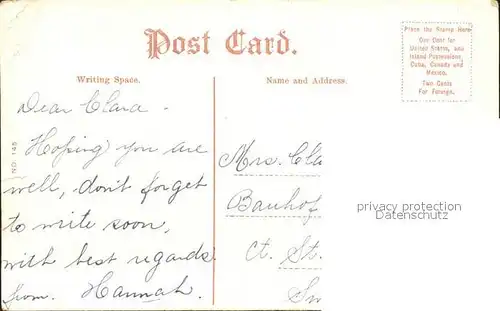 Post Card.
Place the Stamp Here
One Cent for
United States, and
Island Possessions
Cuba, Canada and
Mexico.
Two Cents
For Foreign.
Writing Space.
Name and Address.
NO. 145
Dear Clara -
Hoping you are
well, don't forget
to write soon,
with best regards
from. Hannah.
Mrs. Cla
Bauhof
Ct. St.
permission
Datenschutz